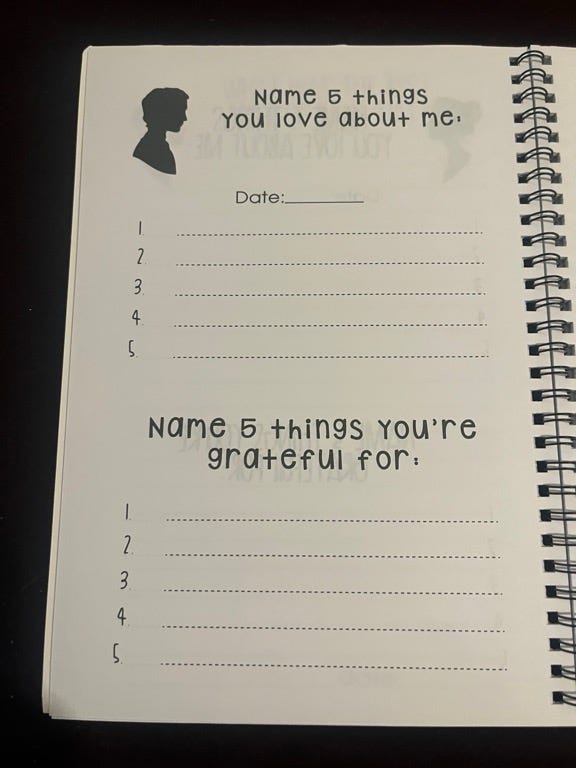 Name 5 things
you love about me:
Date:
1.
2.
3.
4.
5.
Name 5 things you're
grateful for:
1.
2.
3.
4.
5.